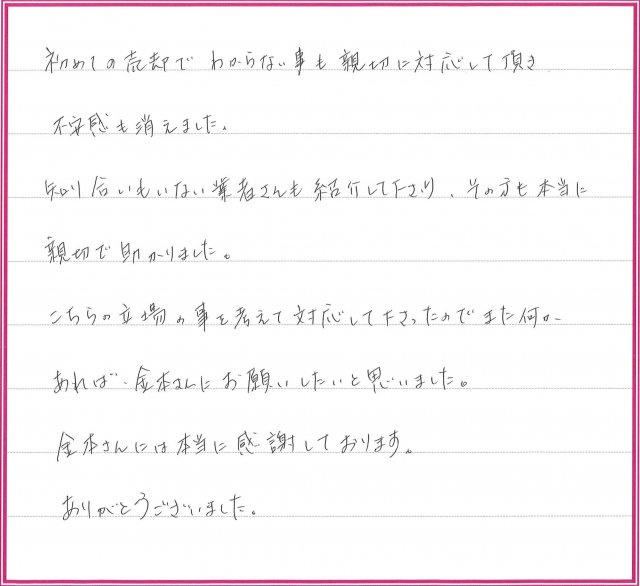 初めての売却で わからない事も 親切に対応して頂き
不安感も消えました。
知り合いもいない業者さんも紹介して下さり、その方も本当に
親切で助かりました。
こちらの立場の事を考えて対応して下さったのでまた何か
あれば、金本さんにお願いしたいと思いました。
金本さんには本当に感謝しております。
ありがとうございました。